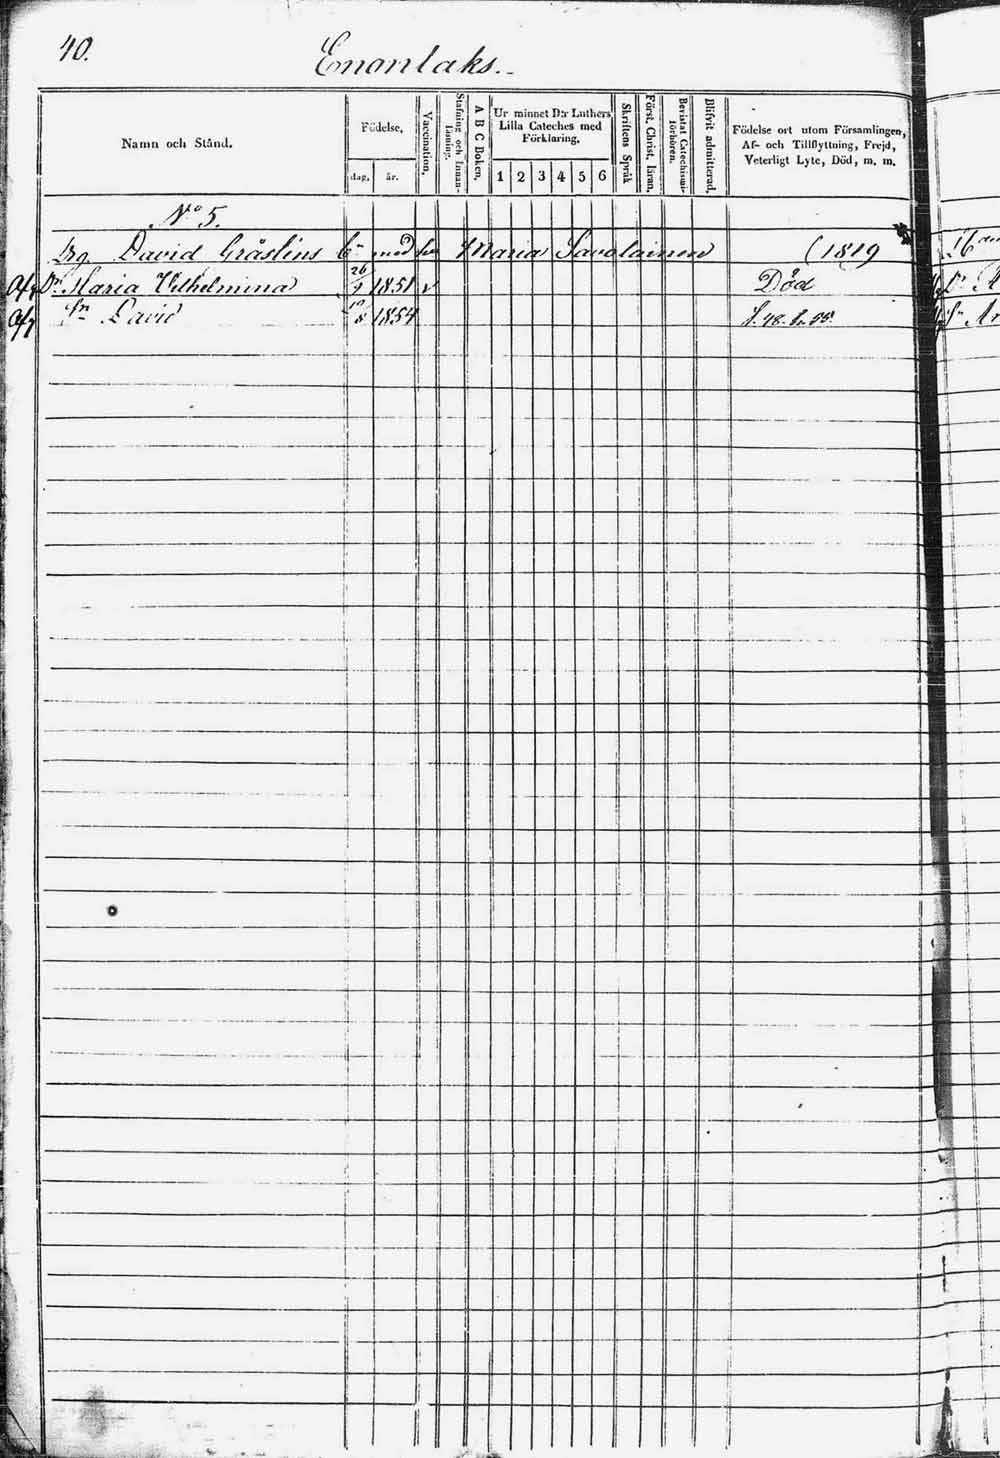 40.
Enonlaks.
Namn och Stånd.
Födelse,
dag,
år.
Vaccination.
Stafning och Innan-
läsning.
A B C Boken.
Ur minnet D:r Luthers
Lilla Cateches med
Förklaring.
1 2 3 4 5 6
Skriftens Språk
Först. Christ. läran.
Bevistat Catechismi-
förhören.
Blifvit admitterad.
Födelse ort utom Församlingen,
Af- och Tillflyttning, Frejd,
Veterligt Lyte, Död, m. m.
No 5.
David Gråstens med Maria Savolainen (1819
Dr Maria Vilhelmina 26 1851 v Död
Sn David 1854